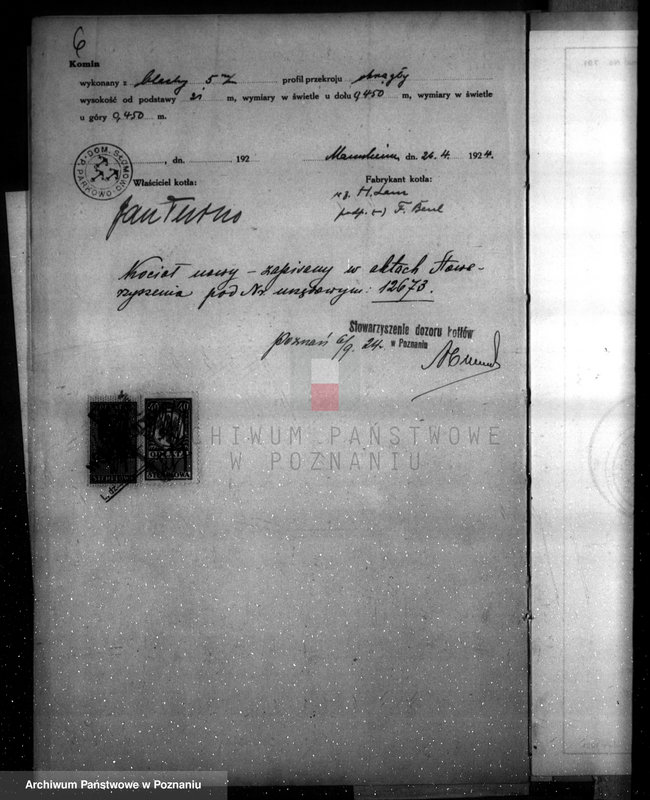 6
Komin
wykonany z blachy 5 profil przekroju okrągły
wysokość od podstawy 21 m, wymiary w świetle u dołu 0,450 m, wymiary w świetle
u góry 0,450 m.
, dn. 192 Mannheim, dn. 26.4. 1924.
Właściciel kotła: Fabrykant kotła:
H. Lanz
Jan Turno podp. (-) F. Beul
Kocioł nowy – zapisany w aktach Stowa-
rzyszenia pod Nr urzędowym: 12673.
Stowarzyszenie dozoru kotłów
w Poznaniu
Poznań 6/9. 24.
40 40
OPŁATA
STEMPLOWA
ARCHIWUM PAŃSTWOWE
W POZNANIU
Archiwum Państwowe w Poznaniu